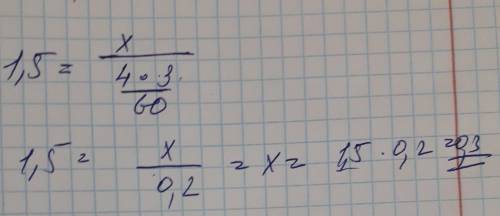 1,5 = x / (4 · 3 / 60)
1,5 = x / 0,2 = x = 1,5 · 0,2 = 0,3